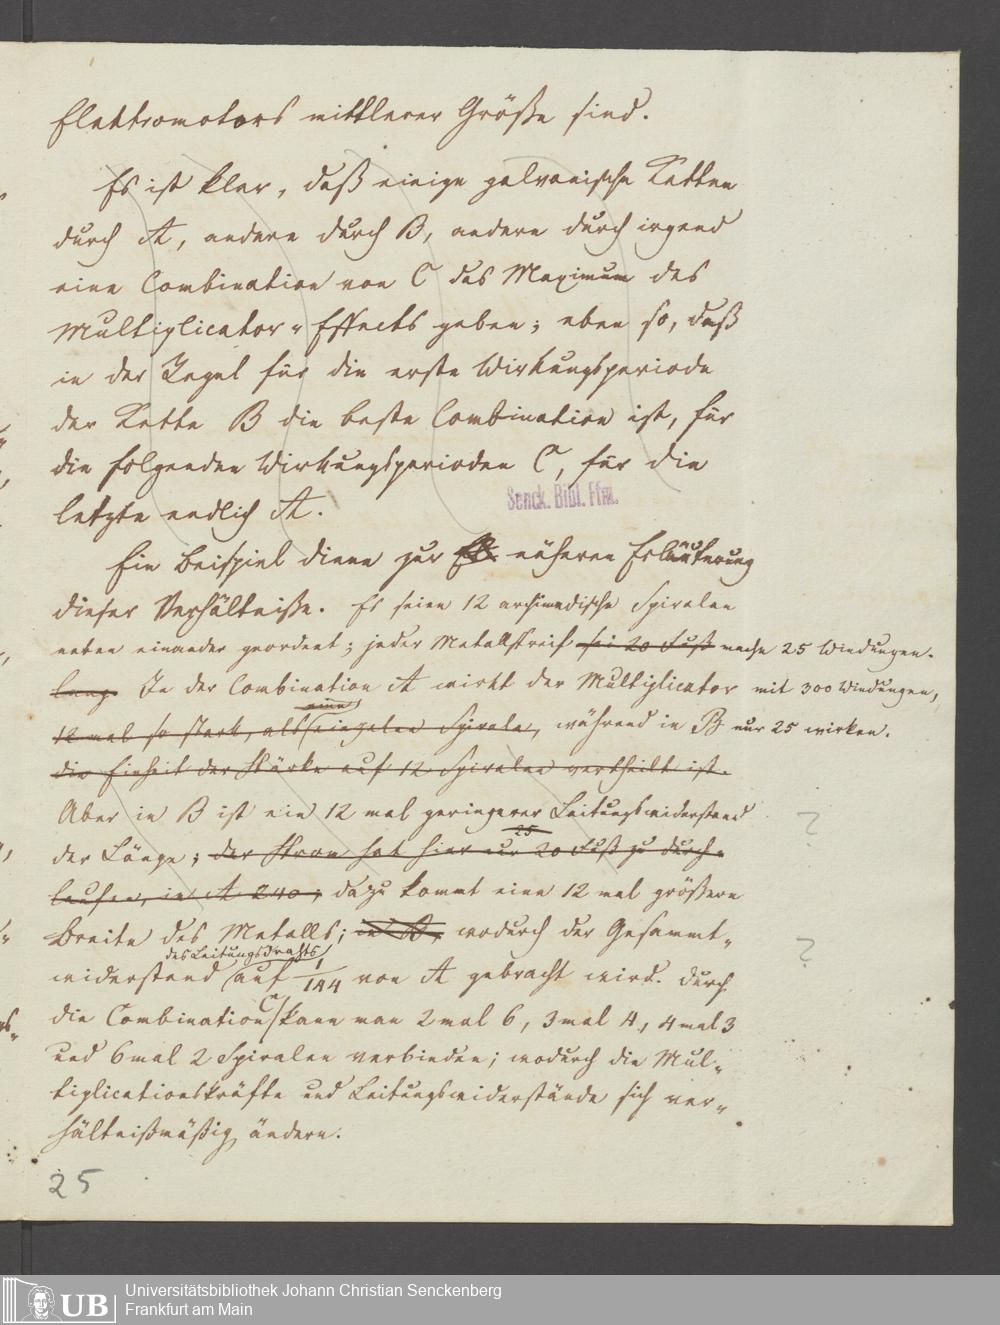 Elektromotors mittlerer Größe sind.
Es ist klar, daß einige galvanische Ketten
durch A, andere durch B, andere durch irgend
eine Combination von C das Maximum des
Multiplicator-Effects geben; eben so, daß
in der Regel für die erste Wirkungsperiode
der Kette B die beste Combination ist, für
die folgenden Wirkungsperioden C, für die
letzte endlich A.
Senck. Bibl. Ffm.
Ein Beispiel diene zur näheren Erläuterung
dieser Verhältniße. Es seien 12 archimedische Spiralen
neben einander geordnet; jeder Metallstreif sei 20 Fuß mache 25 Windungen.
lang. In der Combination A wirkt der Multiplicator mit 300 Windungen,
eine
12 mal so stark, als einzelne Spirale, während in B nur 25 wirken.
die Einheit der Stärke auf 12 Spiralen vertheilt ist.
Aber in B ist ein 12 mal geringerer Leitungswiderstand
25
der Länge; der Strom hat hier nur 20 Fuß zu durch-
laufen, in A 240; dazu kommt eine 12 mal größere
Breite des Metalls; in B, wodurch der Gesammt-
des Leitungsdrahts
widerstand auf 1/144 von A gebracht wird. Durch
C
die Combination kann man 2 mal 6, 3 mal 4, 4 mal 3
und 6 mal 2 Spiralen verbinden; wodurch die Mul-
tiplicationskräfte und Leitungswiderstände sich ver-
hältnißmäßig ändern.
?
?
25
UB
Universitätsbibliothek Johann Christian Senckenberg
Frankfurt am Main